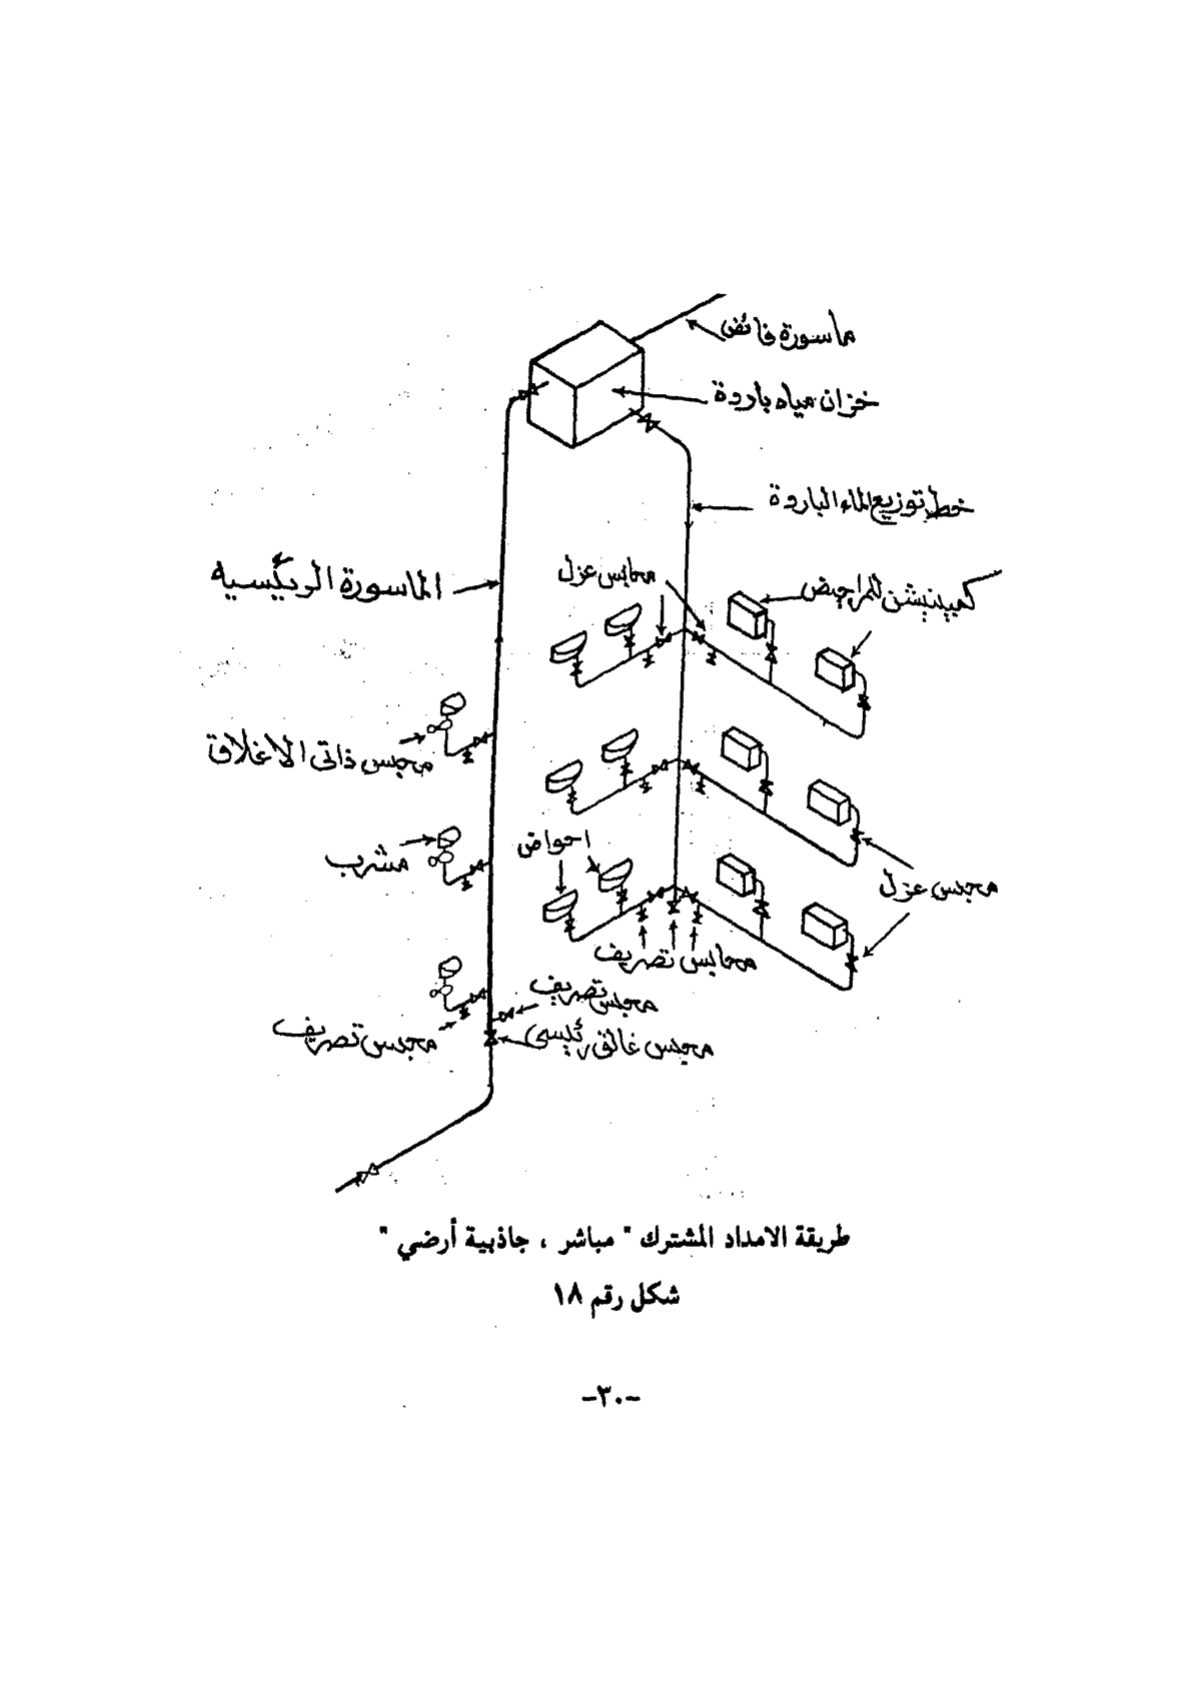 ماسورة فائض
خزان مياه باردة
خط توزيع الماء الباردة
محابس عزل
الماسورة الرئيسيه
كمبينيشن للمراحيض
محبس ذاتى الاغلاق
احواض
مشرب
محبس عزل
محابس تصريف
محبس تصريف
محبس تصريف
محبس غالق رئيسى
طريقة الامداد المشترك " مباشر ، جاذبية أرضي "
شكل رقم ١٨
-٣٠-